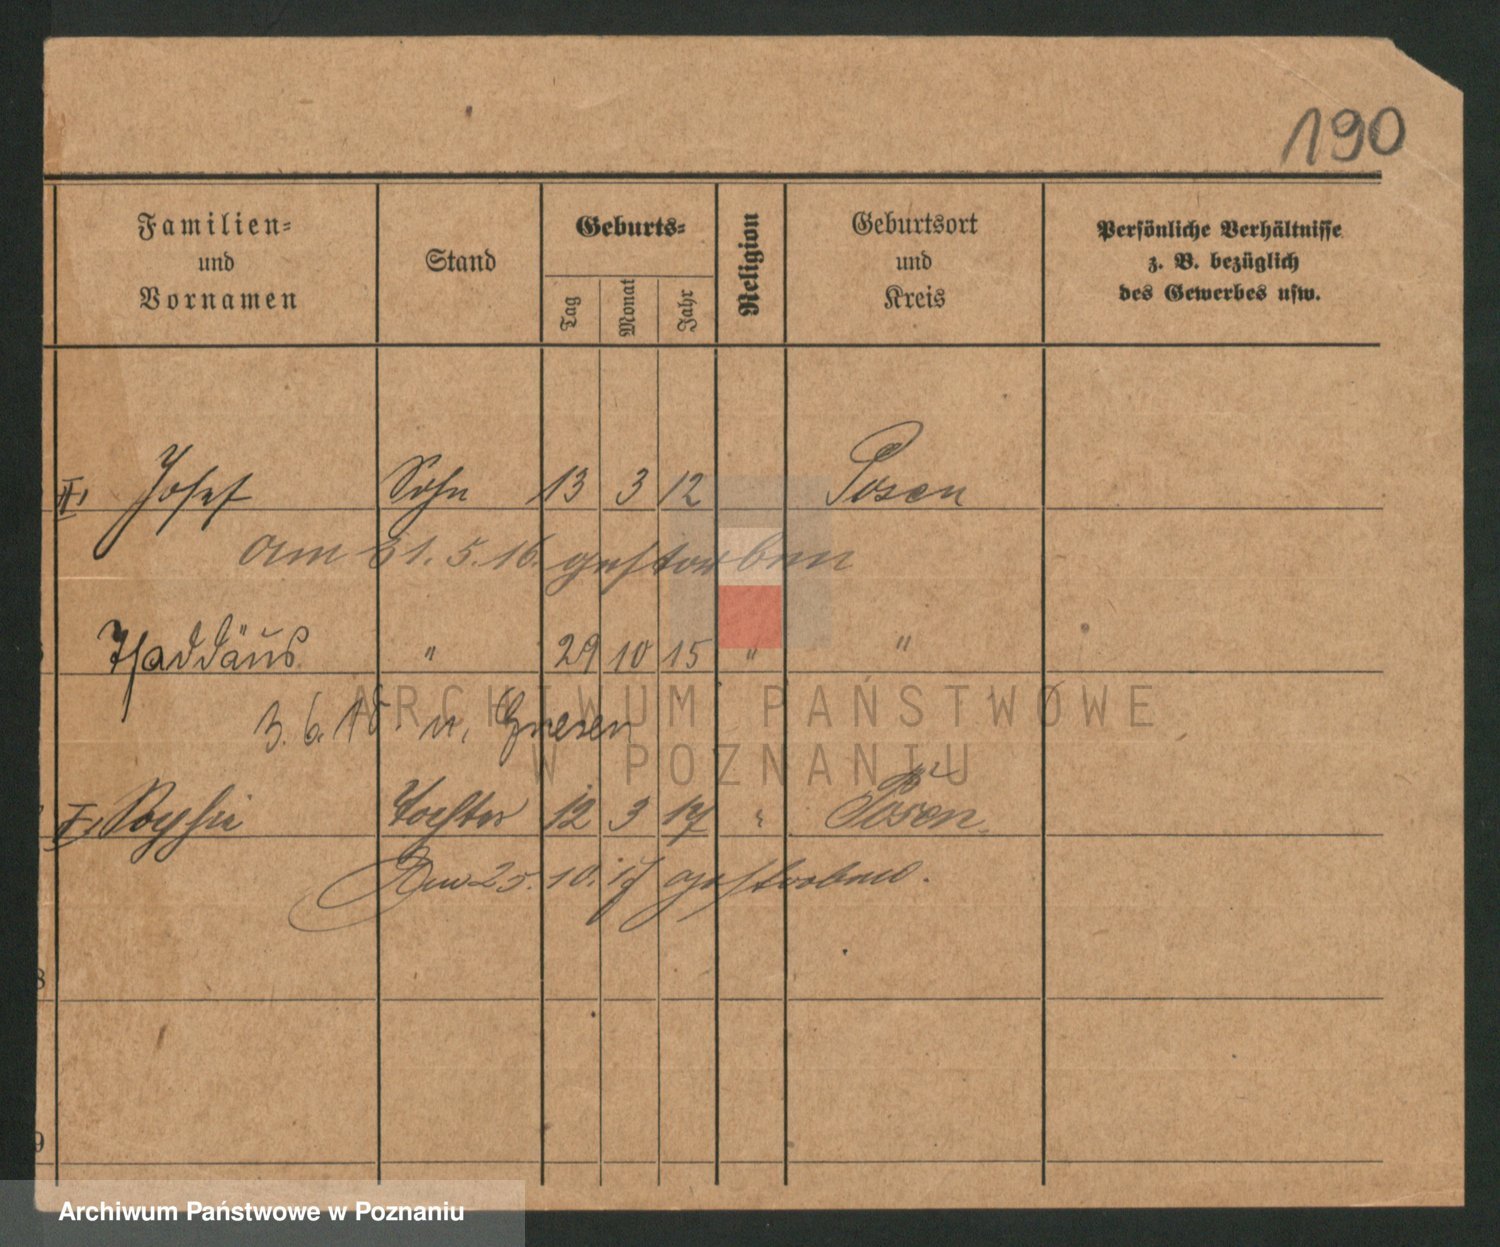 190
Familien= und Vornamen
Stand
Geburts=
Tag
Monat
Jahr
Religion
Geburtsort und Kreis
Persönliche Verhältnisse z. B. bezüglich des Gewerbes usw.
Josef Sohn 13 3 12 Posen
am 31. 5. 16. gestorben
Thaddäus " 29 10 15 " "
3. 6. n. Gnesen
Sophie Tochter 12 3 17 " Posen.
Am 25. 10. 17 gestorben.
8
9
ARCHIWUM PAŃSTWOWE
W POZNANIU
Archiwum Państwowe w Poznaniu